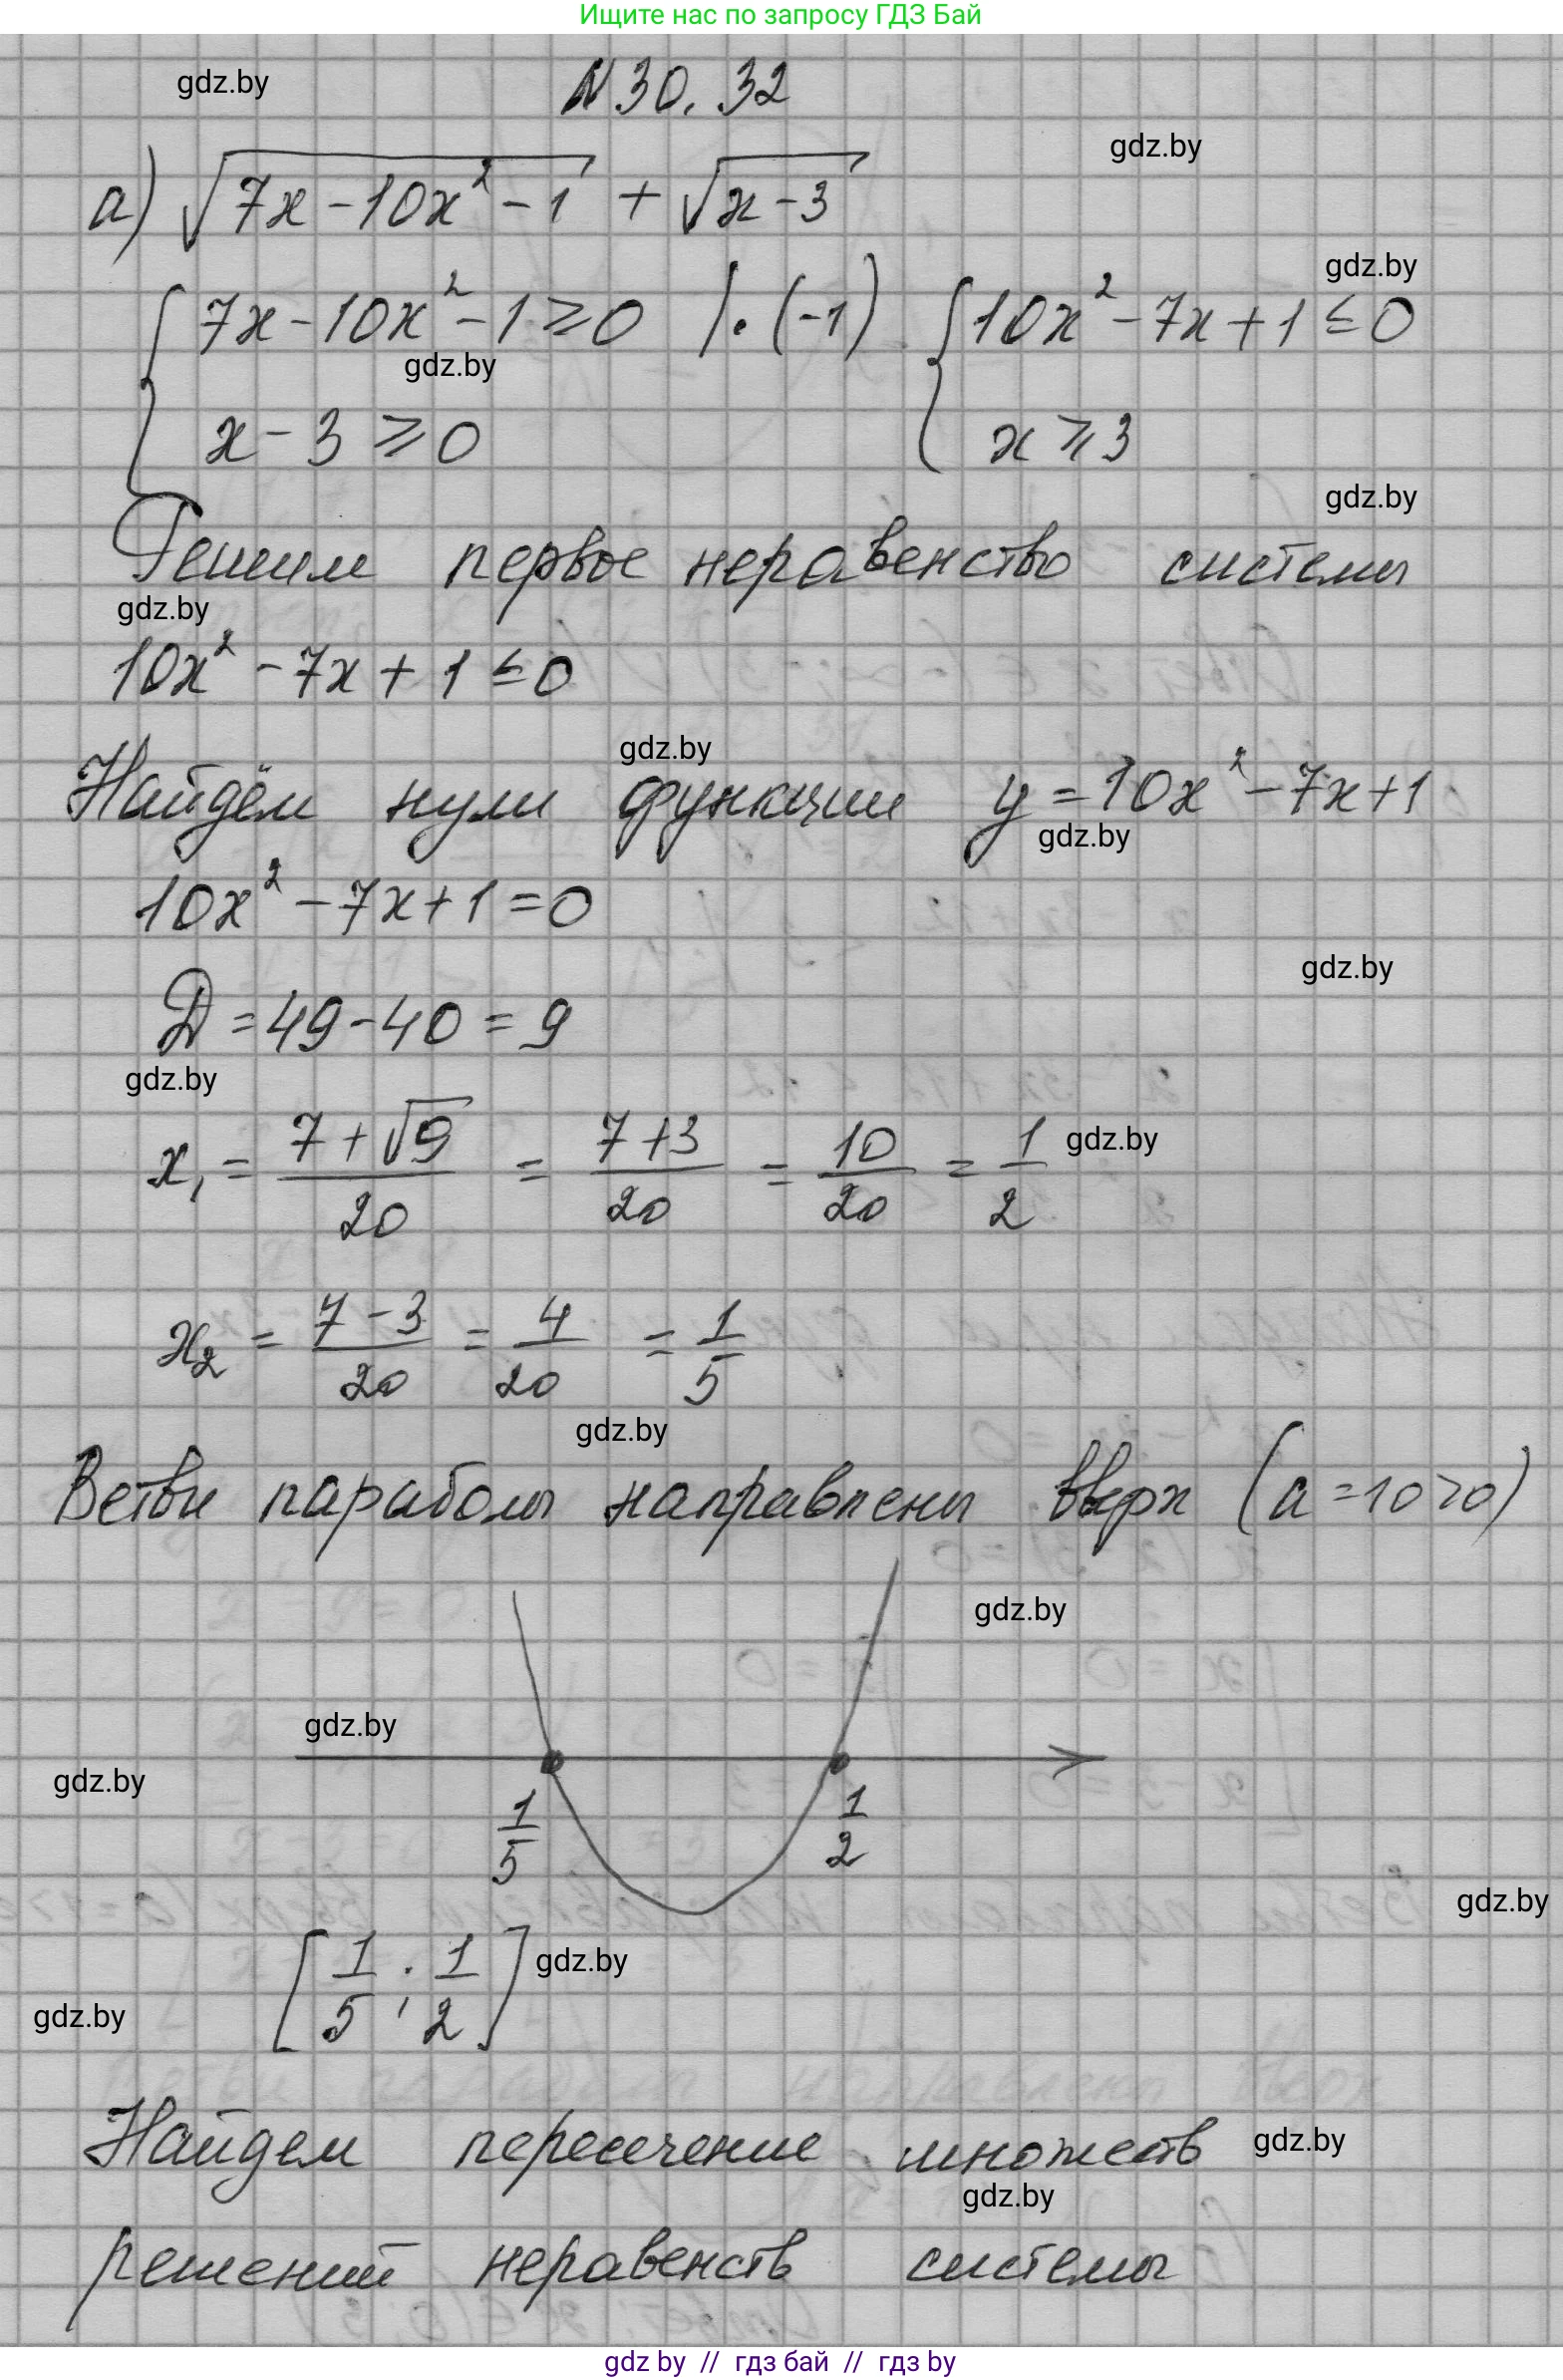 Ищите нас по запросу ГДЗ Бай
gdz.by
N 30. 32
gdz.by
а) √(7x - 10x² - 1) + √(x - 3)
gdz.by
{ 7x - 10x² - 1 ≥ 0 | · (-1) { 10x² - 7x + 1 ≤ 0
gdz.by
x - 3 ≥ 0 x ≥ 3
gdz.by
Решим первое неравенство системы
gdz.by
10x² - 7x + 1 ≤ 0
gdz.by
Найдём нули функции y = 10x² - 7x + 1
gdz.by
10x² - 7x + 1 = 0
gdz.by
D = 49 - 40 = 9
gdz.by
x₁ = (7 + √9)/20 = (7 + 3)/20 = 10/20 = 1/2
gdz.by
x₂ = (7 - 3)/20 = 4/20 = 1/5
gdz.by
Ветви параболы направлены вверх (a = 10 > 0)
gdz.by
gdz.by
gdz.by
1/5 1/2
gdz.by
[1/5; 1/2]
gdz.by
gdz.by
Найдем пересечение множеств
gdz.by
gdz.by
решений неравенств системы
gdz by // гдз бай // гдз by